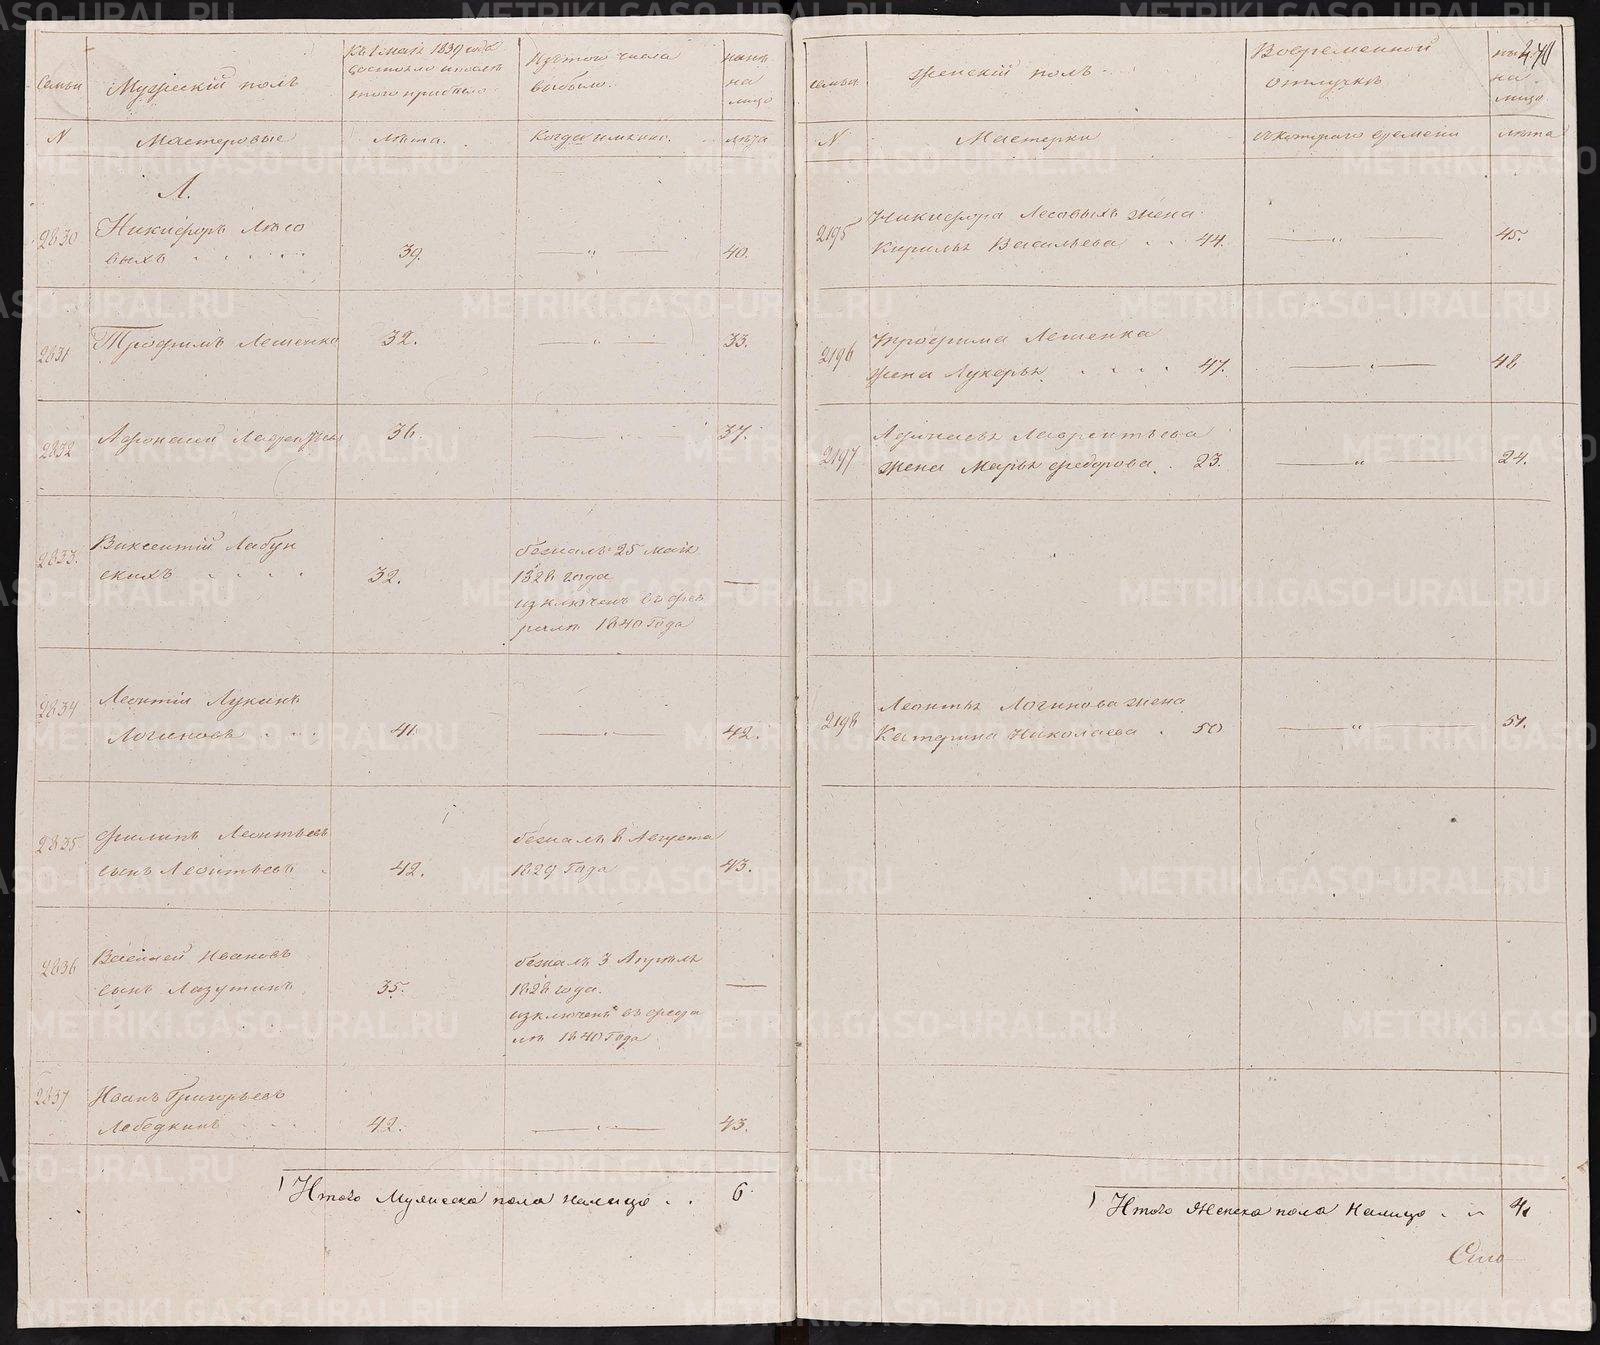 Семьи
Мужескій полъ
Къ 1 маія 1839 года
состояло и послѣ
того прибыло
Изъ того числа
выбыло.
нынѣ
на
лицо
N
Мастеровые
Лѣта.
Когда именно.
лѣта
Л.
2830
Никифоръ Лѣсо
выхъ
39.
40.
2831
Трофимъ Лешенко
32.
33.
2832
Афонасей Лаврентьевъ
36.
37.
2833.
Виксентій Лабун
скихъ
32.
бежалъ 25 маія
1828 года
изключенъ въ фев
ралѣ 1840 Года
2834
Леонтій Лукинъ
Логиновъ
41.
42.
2835
Филипъ Леонтьевъ
сынъ Леонтьевъ
42.
бежалъ 8 Августа
1829 Года
43.
2836
Василей Ивановъ
сынъ Лазутинъ
35.
бежалъ 3 Апреля
1828 года.
изключенъ въ февра
лѣ 1840 Года
2837
Иванъ Григорьевъ
Лебедкинъ
42.
43.
Итого Мужеска пола налицо . . 6.
470
семьи
Женскій полъ
Вовременной
отлучкѣ
нынѣ
на
лицо
N
Мастерки
Скотораго времени
лѣта
2195
Никифора Лесовыхъ жена
Кирилья Васильева . . 44.
45.
2196
Трофима Лешенка
жена Лукерья . . . . 47.
48
2197
Афонасья Лаврентьева
жена Марья Федорова . 23.
24.
2198
Леонтья Логинова жена
Катерина Николаева . 50
51.
Итого Женска пола налицо . . 4